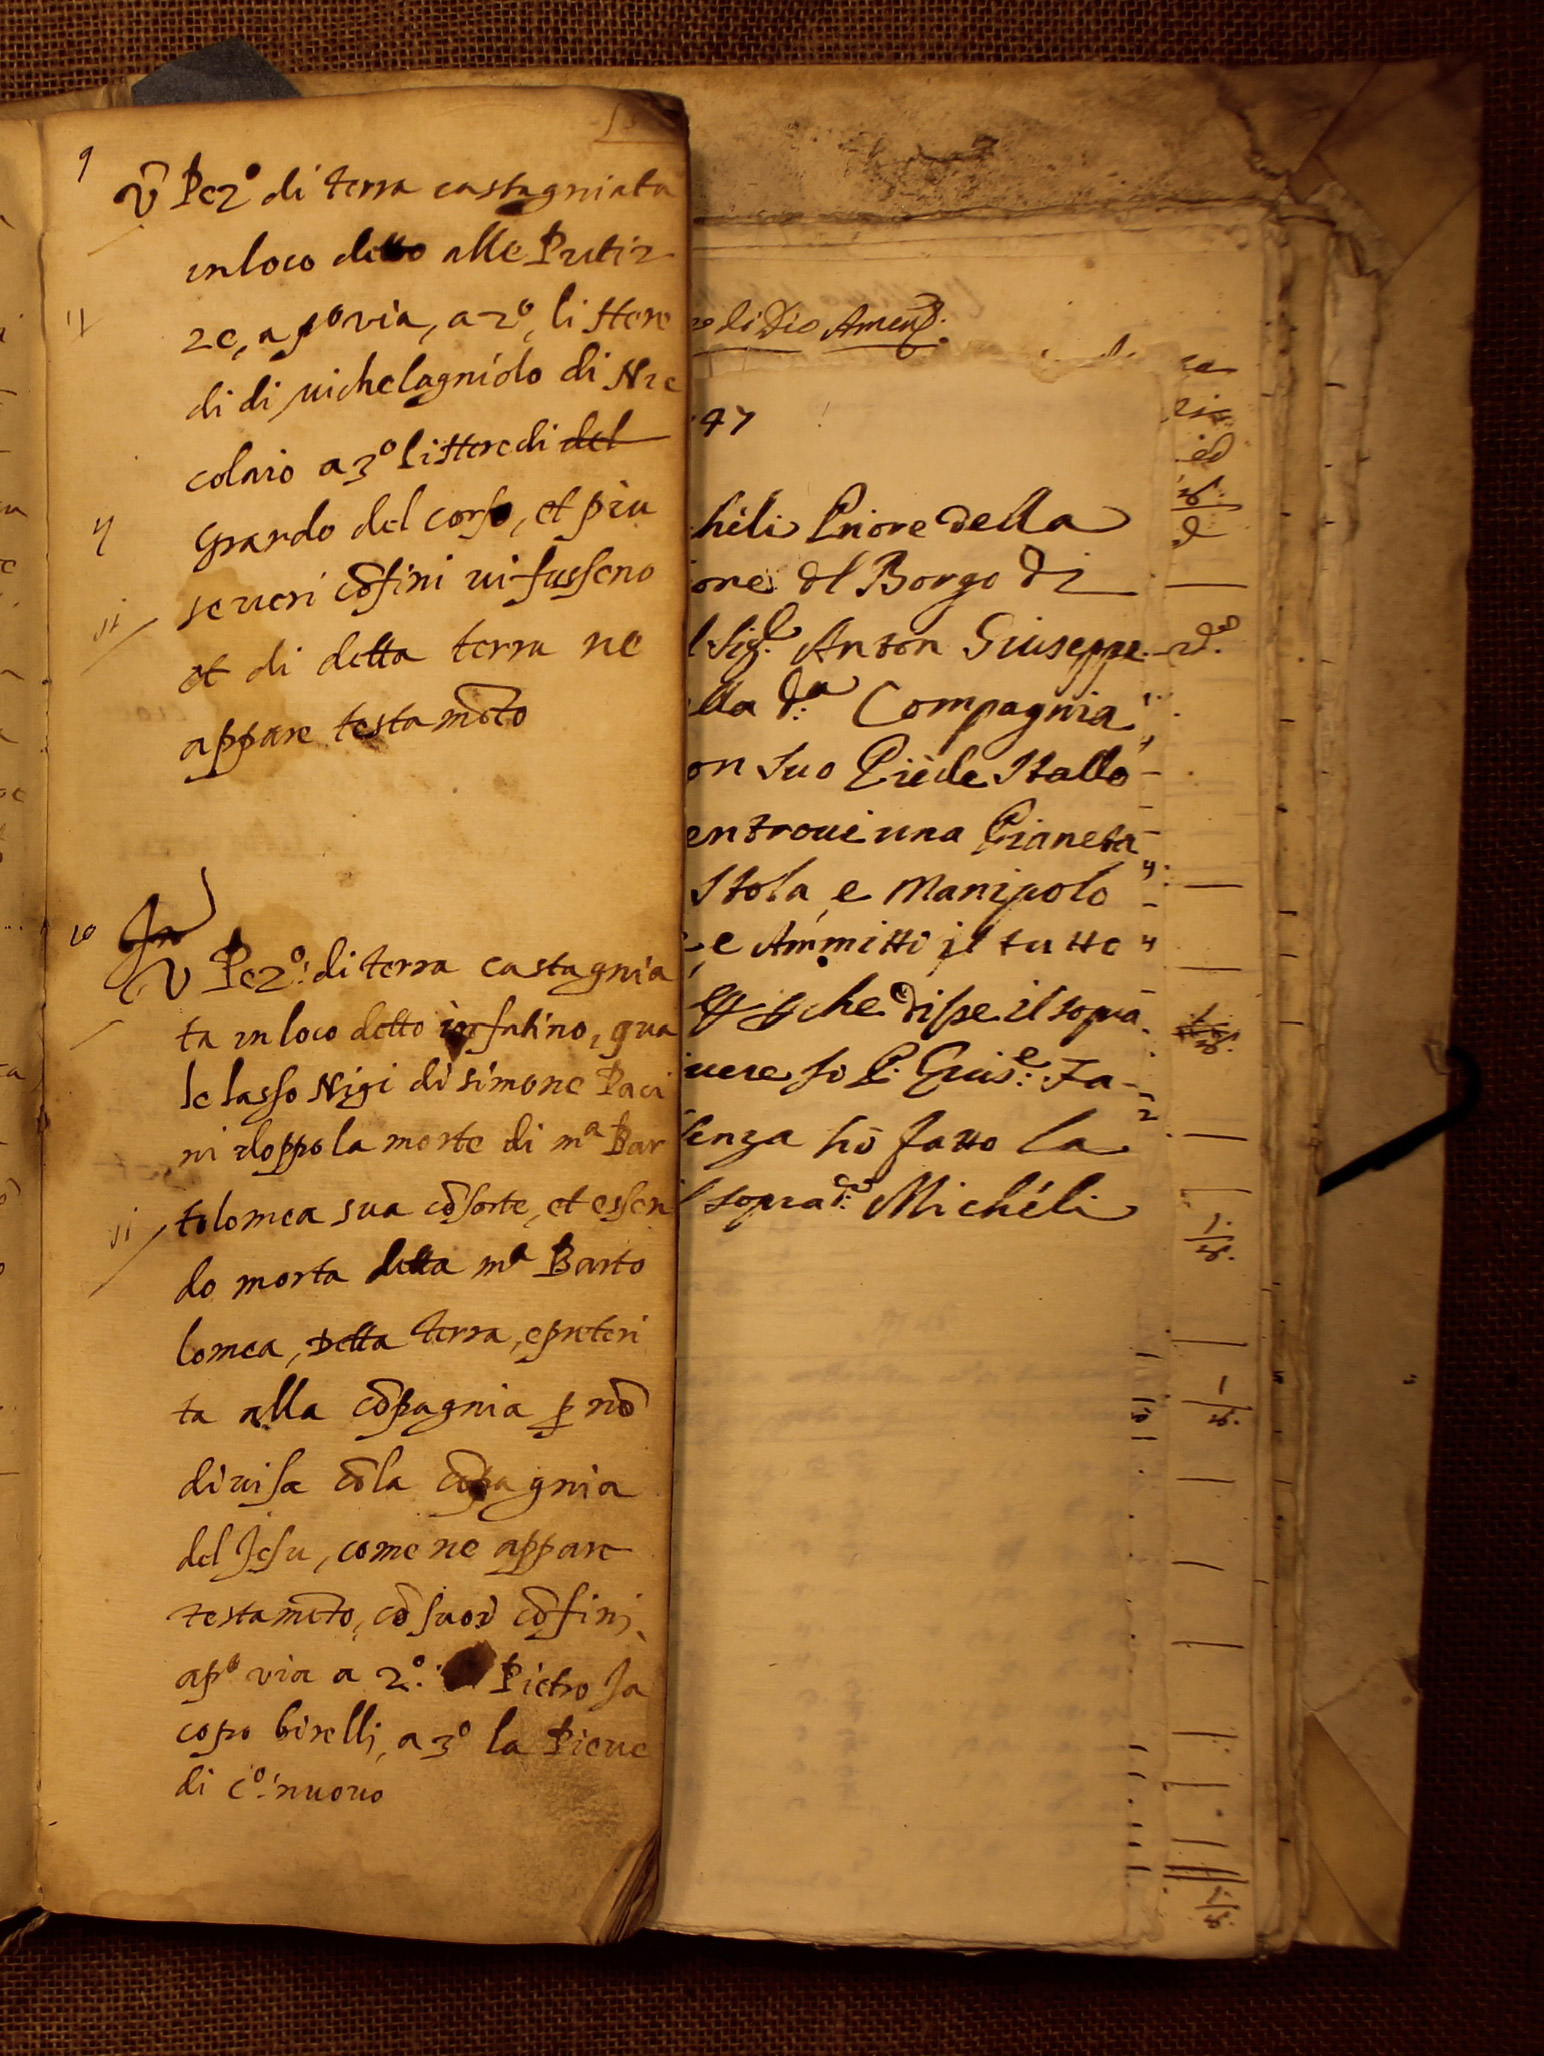 9
Ū Pez.º di terra castagniata
in loco detto alle Prutiz
ze, a pº via, a 2º, li ttere
di di michelagniolo di Nic
colaio a 3º li tteredi del
Grando del corso, et piu
se veri cōfini vi fusseno
et di detta terra ne
appare testamēto
10
In
Ū Pez.º: di terra castagnia
ta in loco detto in fatino, qua
le lasso Nigi di simone Paci
ni doppo la morte di mª Bar
tolomea sua cōsorte, et essen
do morta detta mª Barto
lomea, Detta terra, e preteri
ta alla cōpagnia p nō
divisa cōla cōpagnia
del Jesu, come ne appare
testamēto, cō suoi cōfini,
a pº via a 2º: Pietro Ja
copo birelli, a 3º la Pieve
di C.º: nuovo
di Dio Amen.
47
hili Priore della
ore dl Borgo di
l Sig.r Anton Giuseppe
lla d.ª Compagnia
on suo Piède Stallo
entrovi una Pianeta
Stola, e Manipolo
e Ammitti il tutto
che disse il sopra
vere Io P. Gius.e: Fa-
senza hò fatto la
l sopra d.: Michéli